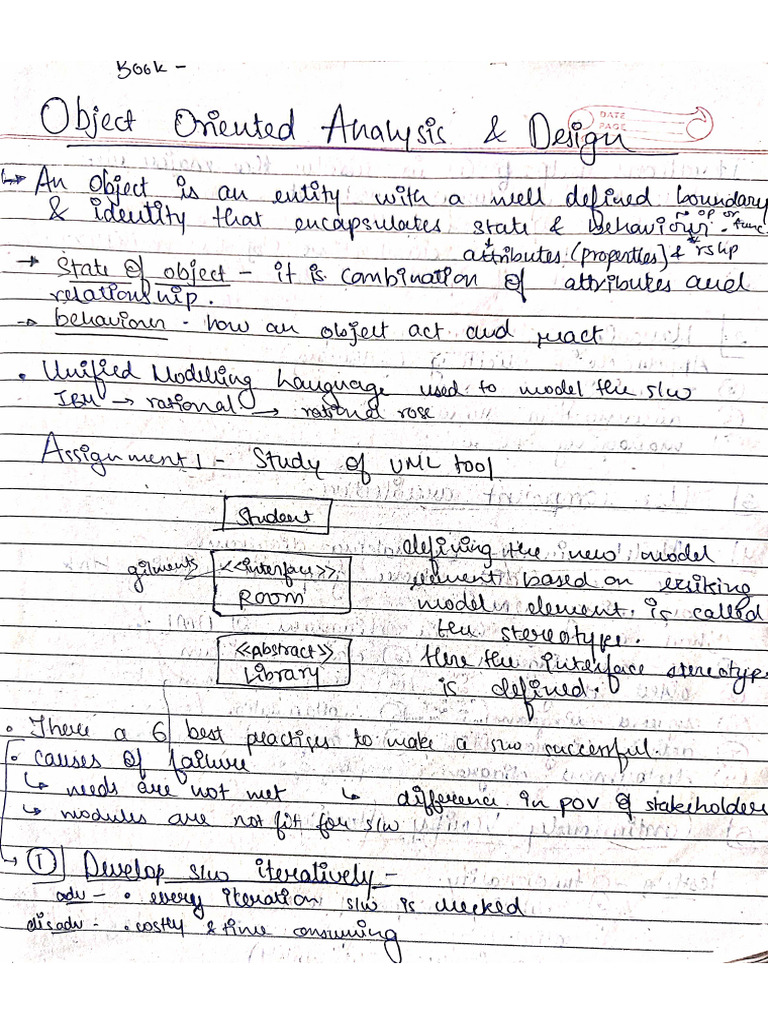 Book -
Object Oriented Analysis & Design
DATE
PAGE
↳ An object is an entity with a well defined boundary
& identity that encapsulates state & behaviour
→ op or func.
* attributes (properties) & * rship
→ State of object - it is combination of attributes and
relationship.
→ behaviour - how an object act and react
• Unified Modelling Language used to model the s/w
IBM → rational → rational rose
Assignment 1 - Study of UML tool
Student
<<interface>>
Room
<<Abstract>>
Library
defining the new model
element based on
model element is called
the stereotype.
Here the interface stereotype
is defined.
• There a 6 best practises to make a s/w successful.
• causes of failure
↳ needs are not met ↳ difference in pov of stakeholders
↳ modules are not fit for s/w
① Develop s/w iteratively -
adv - • every iteration s/w is checked
disadv - • costly & time consuming